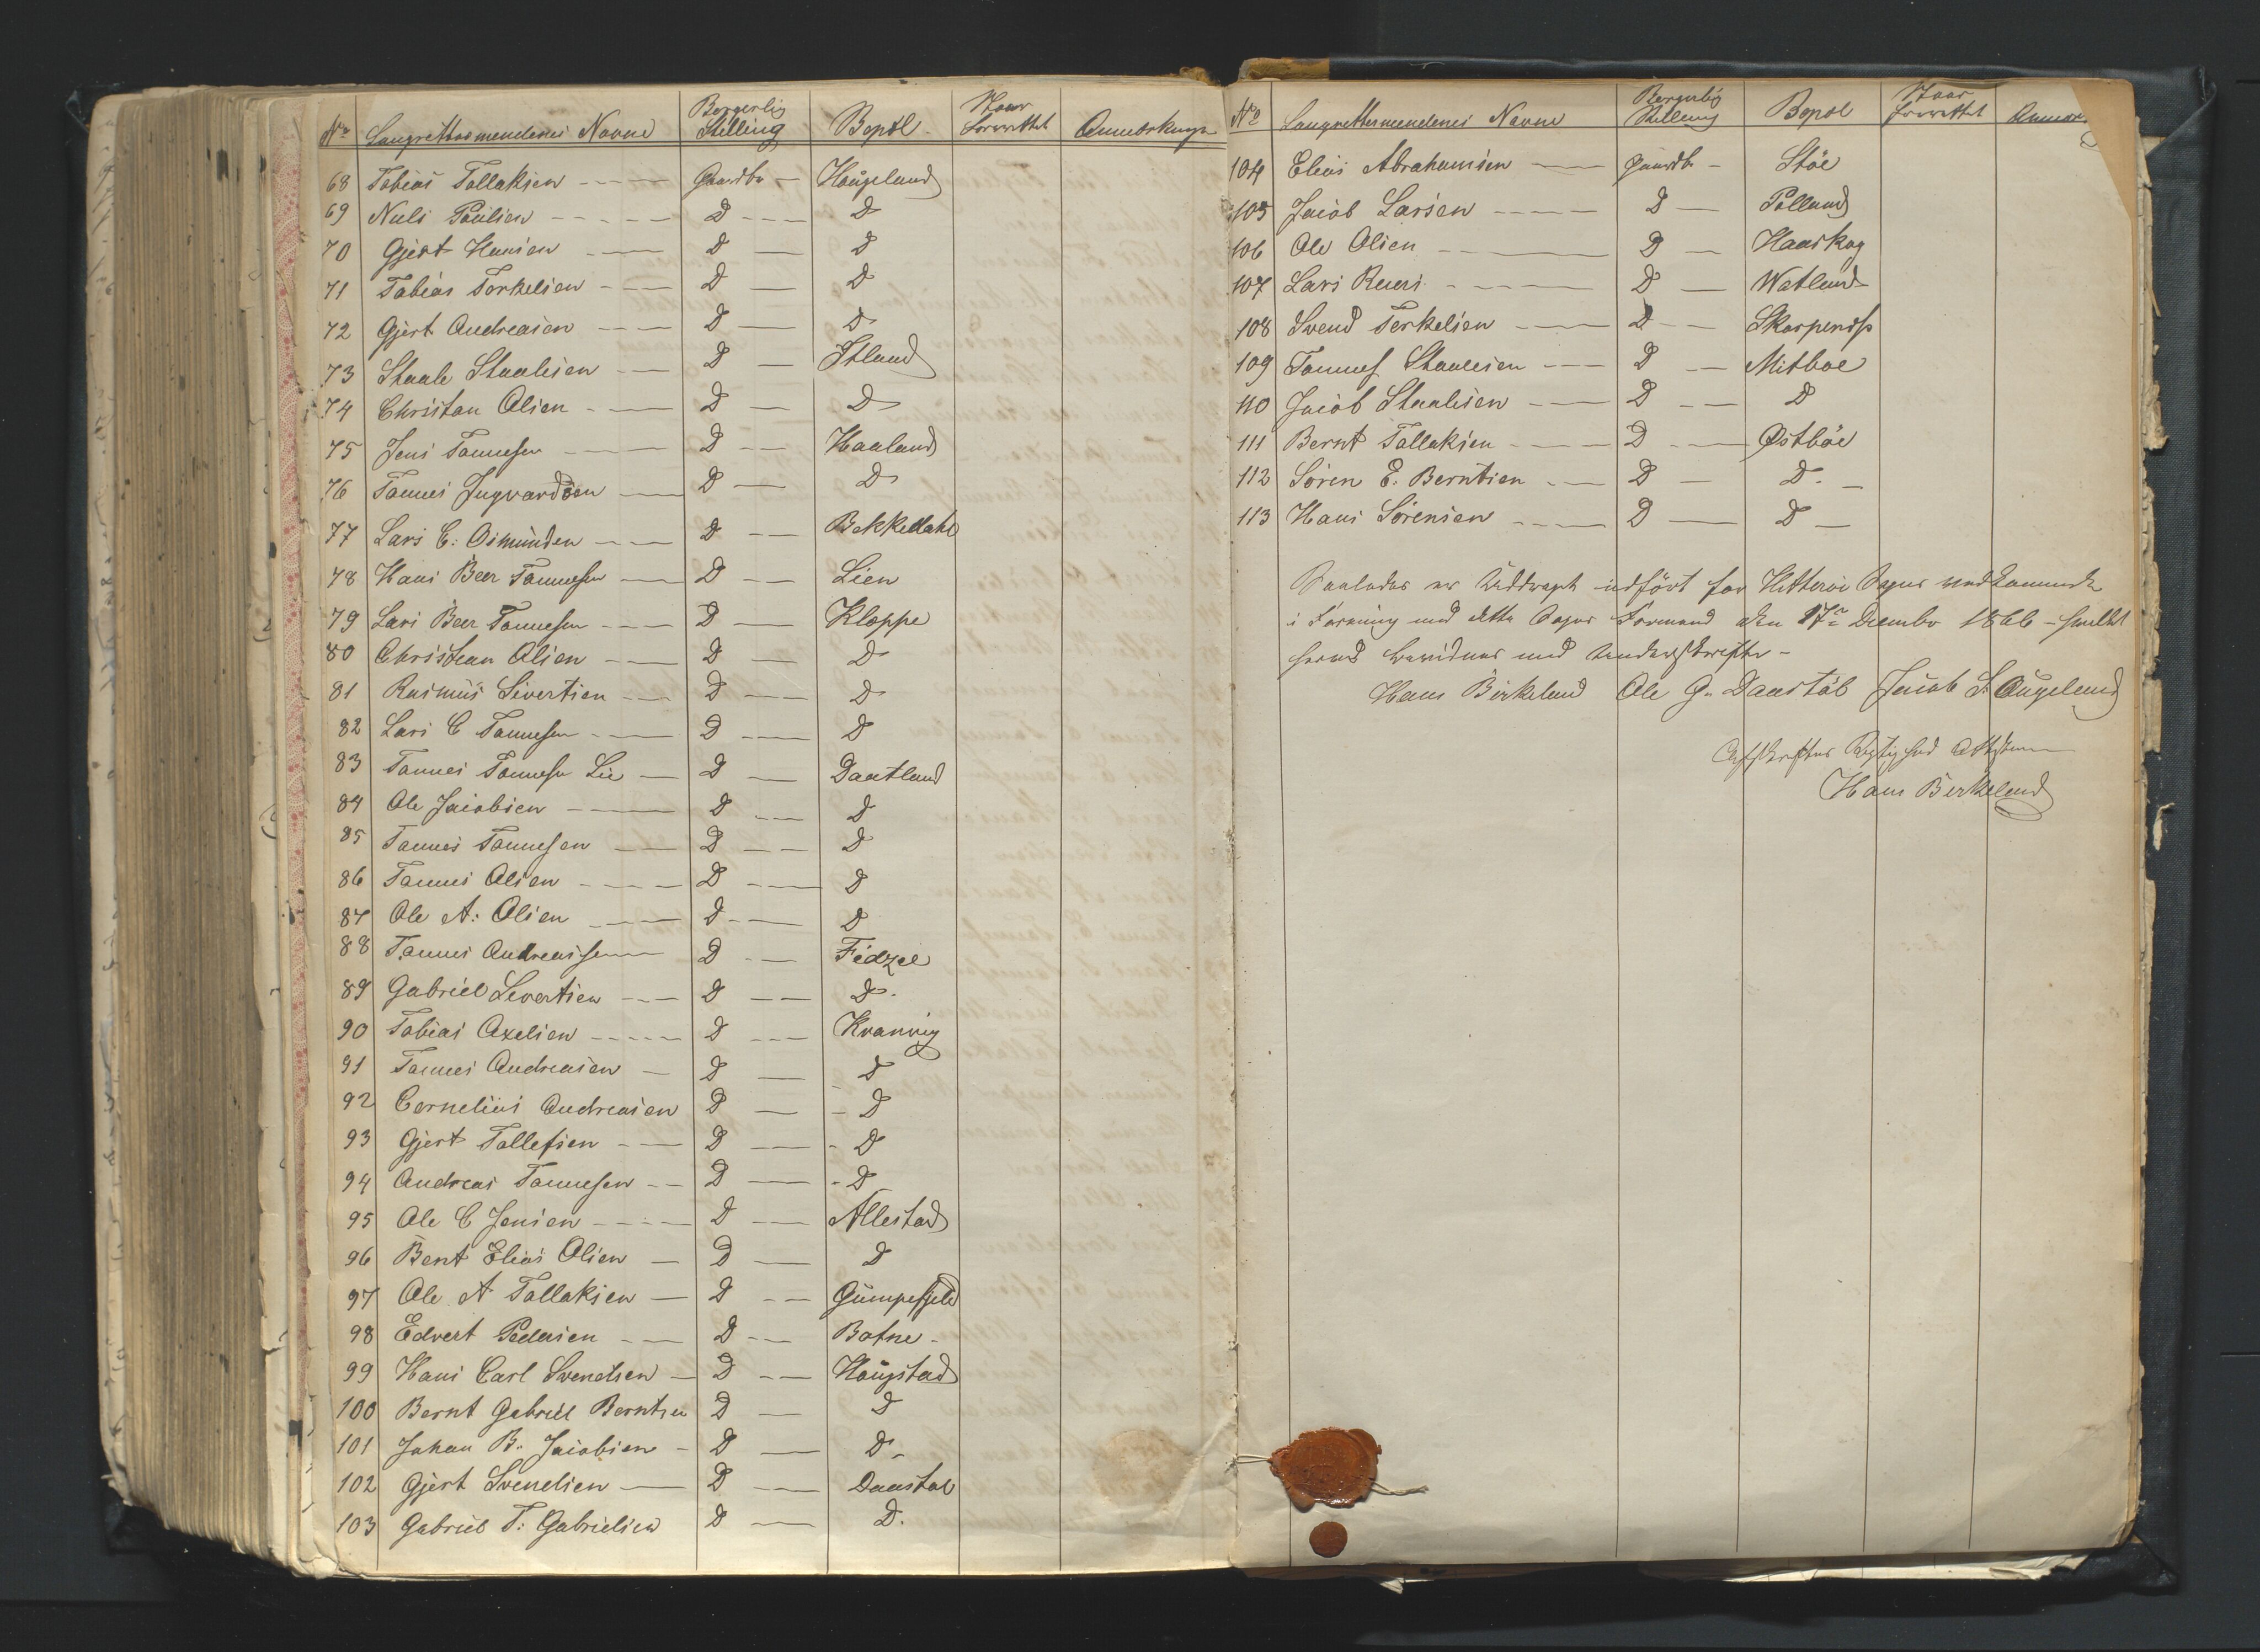 No Laugrettesmendenes Navne Borgerlig Stilling Bopæl Naar forrettet Anmerkninger
68 Tobias Tollaksen Gaardbr Haugeland
69 Nuls Paulsen D D
70 Gjert Hansen D D
71 Tobias Torkelsen D D
72 Gjert Andreasen D D
73 Staale Staalesen D Itland
74 Christan Olsen D D
75 Jens Tønnesen D Haaland
76 Tønnes Ingvardsen D D
77 Lars C: Osmunden D Bekkedahl
78 Hans Beer Tønnesen D Lien
79 Lars Beer Tønnesen D Kloppe
80 Christian Olsen D D
81 Rasmus Sivertsen D D
82 Lars C Tønnesen D D
83 Tønnes Tønnesen Lie D Daatland
84 Ole Jacobsen D D
85 Tønnes Tønnesen D D
86 Tønnes Olsen D D
87 Ole A: Olsen D D
88 Tønnes Andreassen D Fidzel
89 Gabriel Sivertsen D D
90 Tobias Axelsen D Kvanvig
91 Tønnes Andreasen D D
92 Cornelius Andreasen D D
93 Gjert Tollefsen D D
94 Andreas Tønnesen D D
95 Ole C Jensen D Allestad
96 Bent Elias Olsen D D
97 Ole A Tollaksen D Gumpefjeld
98 Edvert Pedersen D Botne
99 Hans Carl Svendsen D Haugstad
100 Bernt Gabriel Berntsen D D
101 Johan B. Jacobsen D D
102 Gjert Svendsen D Daastøl
103 Gabriel T: Gabrielsen D D.
No Laugrettesmendenes Navne Borgerlig Stilling Bopæl Naar forrettet
104 Elias Abrahamsen Gaardbr Støe
105 Jacob Larsen D Polland
106 Ole Olsen D Haaskog
107 Lars Reiers D Watland
108 Svend Terkelsen D Skarpenes
109 Tønnes Staalesen D Mitboe
110 Jacob Staalesen D D
111 Bernt Tollaksen D Østbøe
112 Søren E. Berntsen D D.
113 Hans Sørensen D D
Saaledes er Uddraget udført for Hitterøe Sogns vedkommende
i Forening med dette Sogns Formand den 17de Decembr 1866 - hvilket
herved bevidnes med Underskrifter -
Hans Birkeland Ole G. Daastøl Jacob S. Augeland
Afskriftens Rigtighed Attesteres
Hans Birkeland